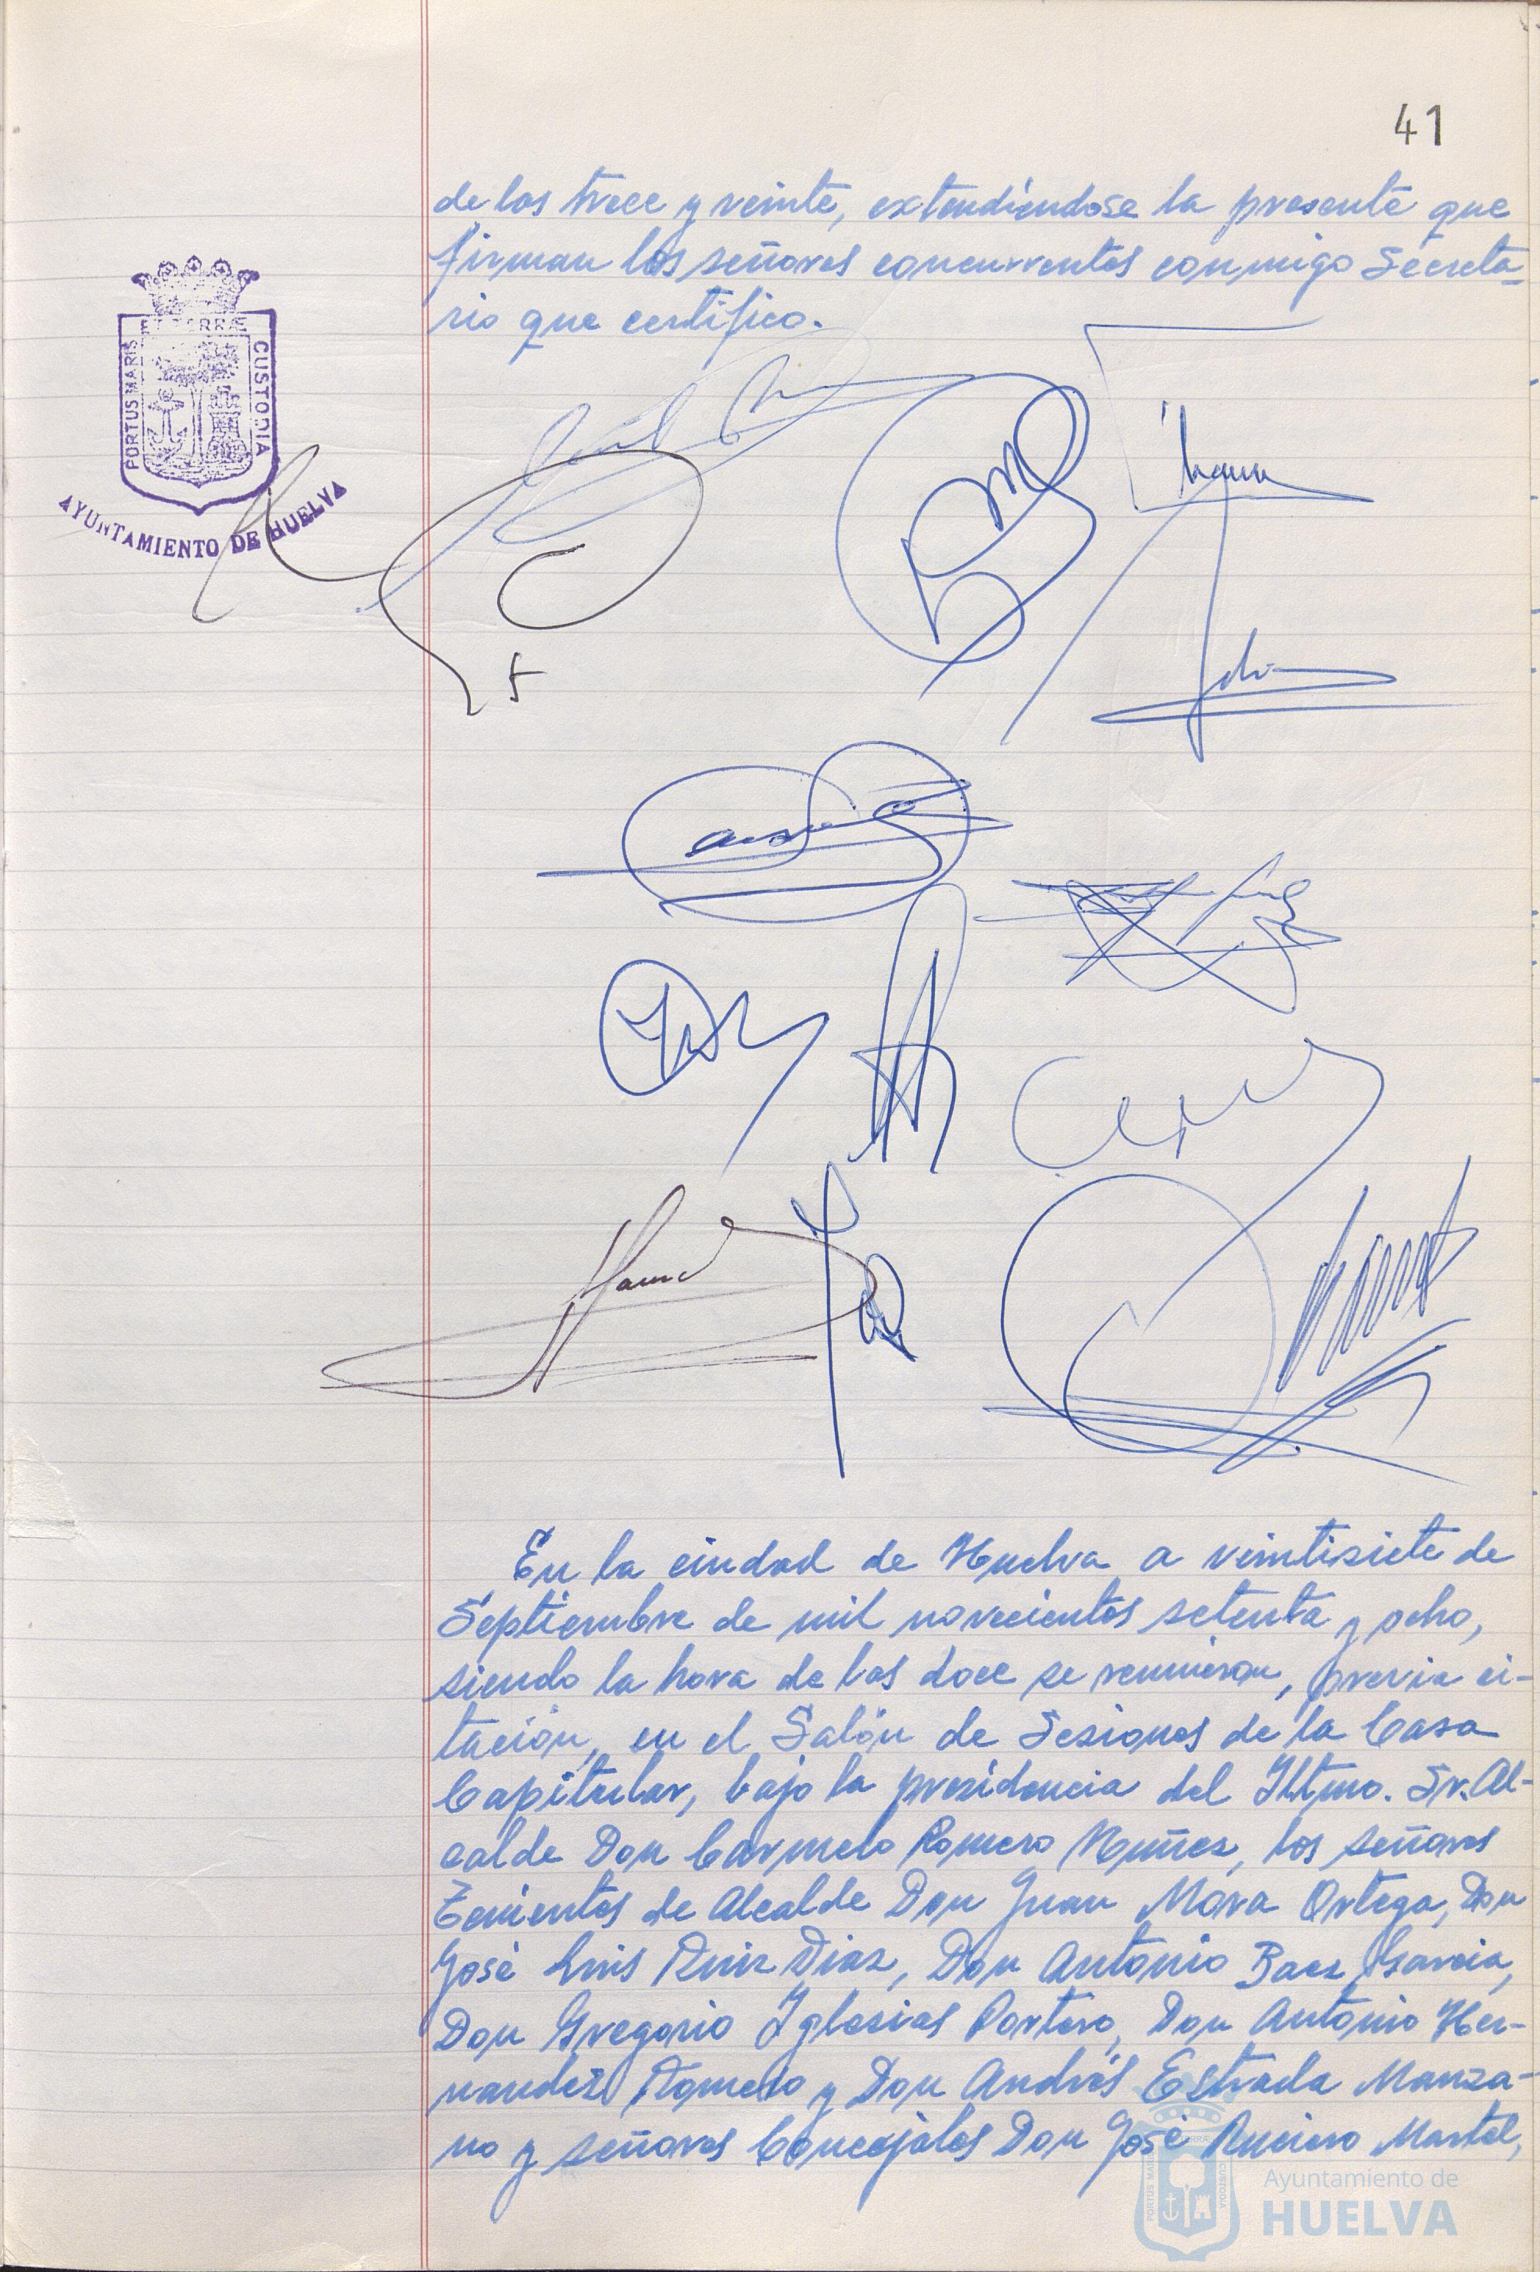 41
de las trece y veinte, extendiéndose la presente que
firman los señores concurrentes conmigo Secreta-
rio que certifico.
PORTUS MARIS ET TERRAE CUSTODIA
AYUNTAMIENTO DE HUELVA
En la ciudad de Huelva a veintisiete de
Septiembre de mil novecientos setenta y ocho,
siendo la hora de las doce se reunieron, previa ci-
tación, en el Salón de Sesiones de la Casa
Capitular, bajo la presidencia del Iltmo. Sr. Al-
calde Don Carmelo Romero Nuñez, los señores
Tenientes de Alcalde Don Juan Mora Ortega, Don
José Luis Ruiz Diaz, Don Antonio Baez Garcia,
Don Gregorio Iglesias Portero, Don Antonio Her-
nandez Romero y Don Andrés Estrada Manza-
no y señores Concejales Don José Ruciero Martel,
Ayuntamiento de
HUELVA